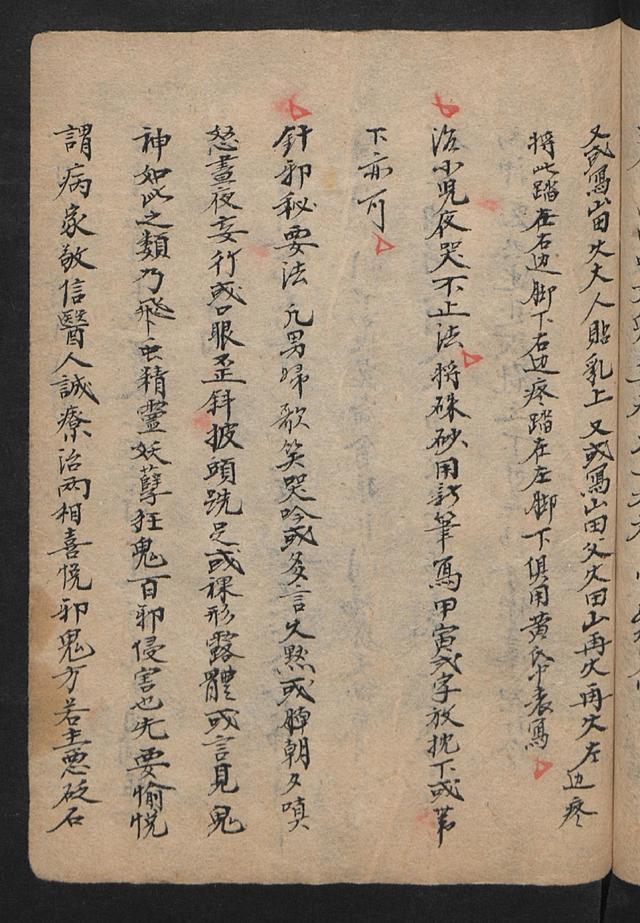 又或寫山田火大人貼乳上又或寫山田父火田山再火再火左边疼
將此踏在右边脚下右边疼踏在左脚下俱用黃帋朱表寫
治小児夜哭不止法將硃砂用新筆寫甲寅或字放枕下或蓆
下亦可
針邪秘要法凡男婦歌笑哭吟或多言久默或朝夕嗔
怒晝夜妄行或口眼歪斜披頭跣足或裸形露體或言見鬼
神如此之類乃飛虫精靈妖孽狂鬼百邪侵害也先要愉悅
謂病家敬信醫人誠療治兩相喜悅邪鬼方若主惡砭石